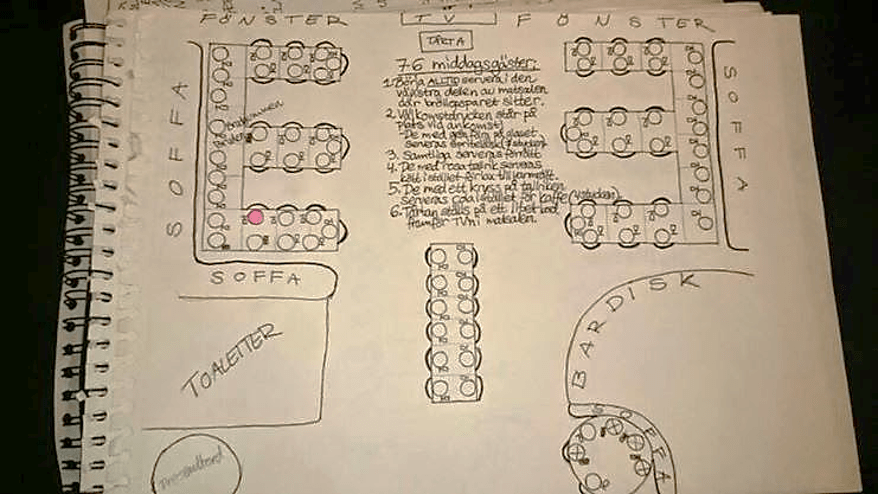 FÖNSTER
TV
FÖNSTER
TÅRTA
76 middagsgäster:
1. Börja ALLTID servera i den
vänstra delen av matsalen
där bröllopsparet sitter.
2. Välkomstdrycken står på
plats vid ankomst!
De med gul färg på glaset
serveras
3. Samtliga serveras förrätt
4. De med rosa tallrik serveras
kött i stället för lax till varmrätt.
5. De med ett kryss på tallriken
serveras cola istället för kaffe (4 stycken)
6. Tårtan ställs på ett litet bord
framför TVn i matsalen.
SOFFA
Brudgummen
Bruden
SOFFA
SOFFA
TOALETTER
BARDISK
SOFFA